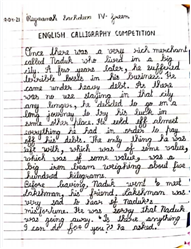 ENGLISH CALLIGRAPHY COMPETITION
Once there was a very rich merchant
called Naduk who lived in a big
city. A few years later, he suffered
terrible losts in his business. He
came under heavy debt. As there
was no use staying in that city
any longer, he decided to go on a
long journey to try his luck in
some other place. He sold off almost
everything he had in order to pay
off his debts. The only thing he was
left with, which was of some value,
which was of some value, was a
big iron beam weighing about five
hundred kilograms.
Before leaving, Naduk went to meet
Lakshman, his friend. Lakshman was
very sad to hear of Naduk's
misfortune. He was sorry that Naduk
was going away. "Is there anything
I can do for you?" he asked.